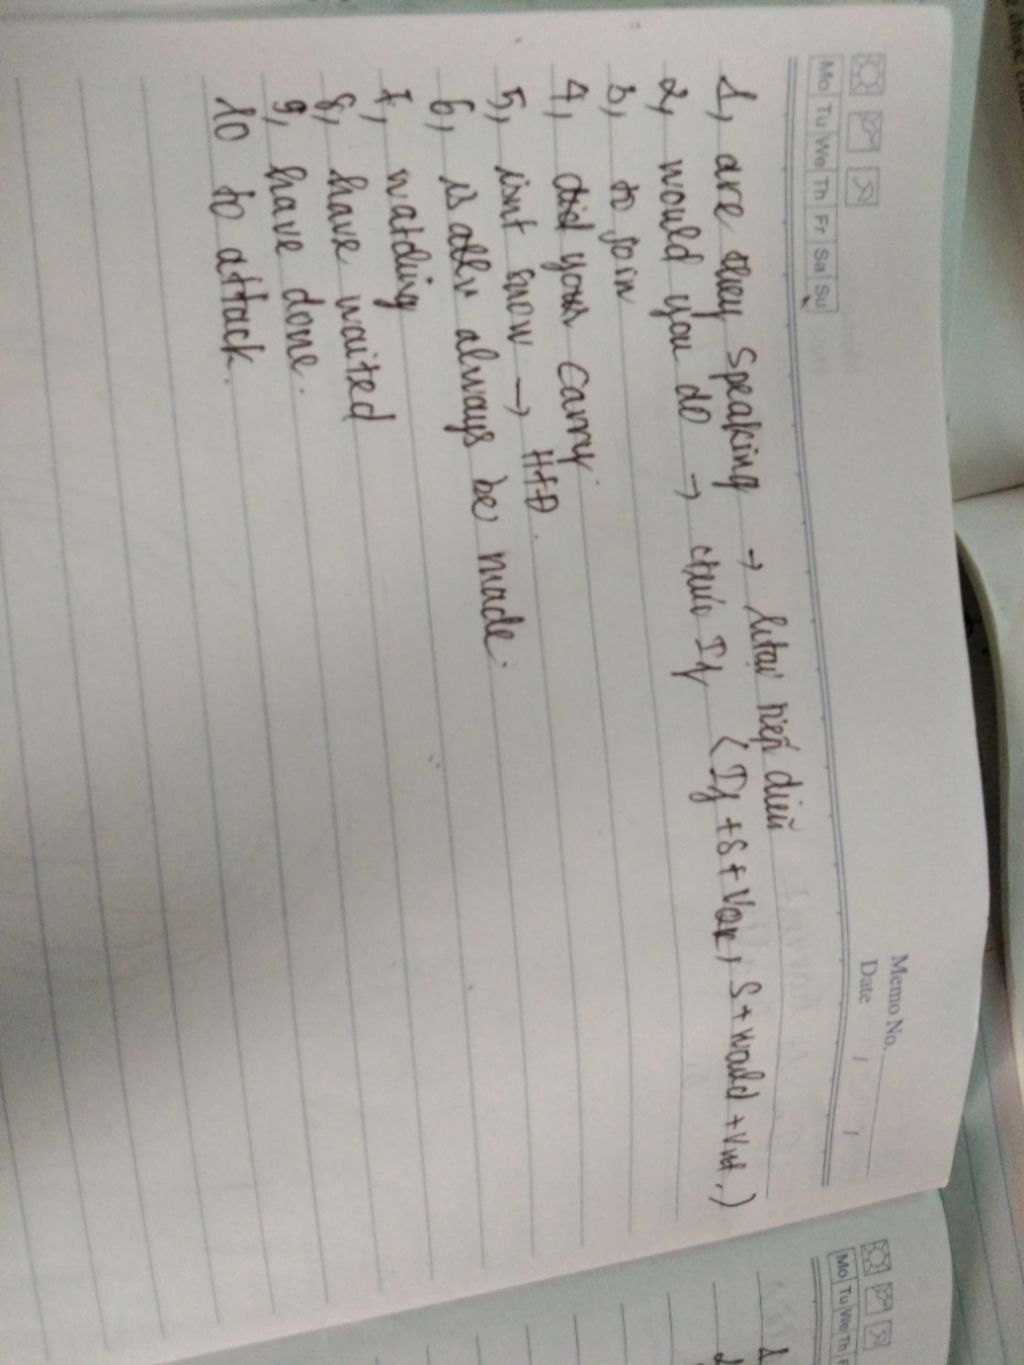 Memo No.
Mo Tu We Th Fr Sa Su
Date / /
1, are they speaking → htại tiếp diễn
2, would you do → thức If (If + S + Vqk, S + would + Vnt,)
3, to join
4, did your carry
5, isnt snow → HTĐ.
6, is always be made.
7, watching
8, have waited
9, have done.
10 to attack.
Mo Tu We Th
1
2